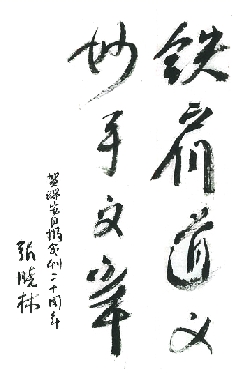 铁肩道义
妙手文章
贺安日报创刊二十周年
张晓林